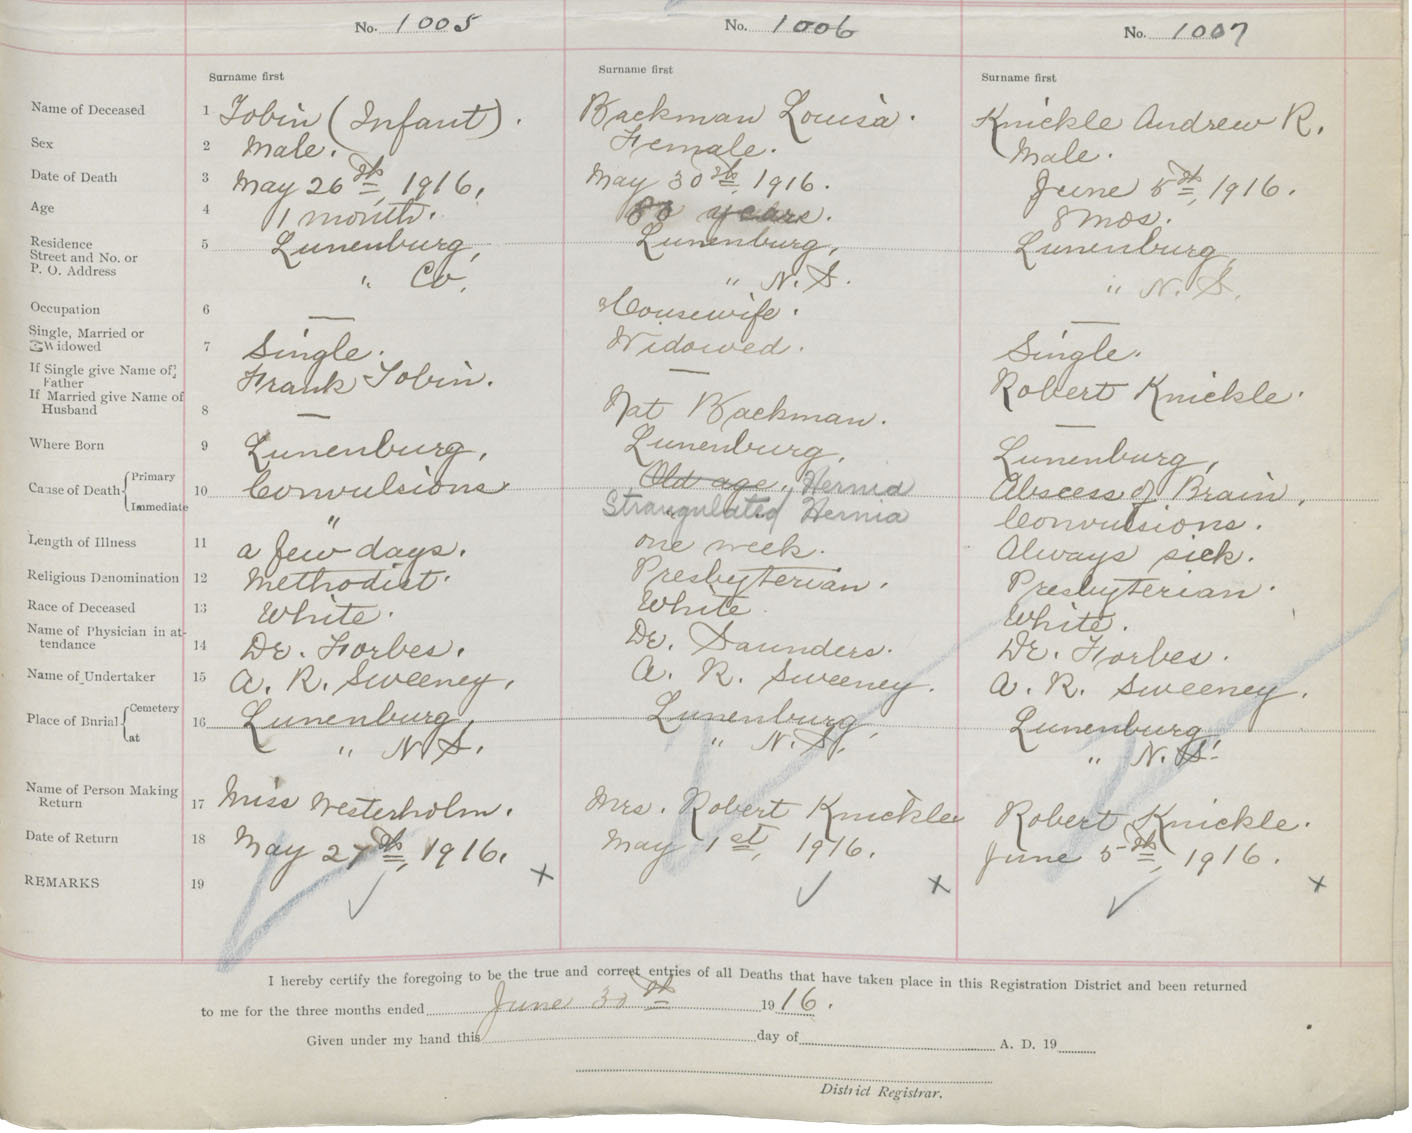 No. 1005
No. 1006
No. 1007
Surname first
Surname first
Surname first
Name of Deceased 1 Tobin (Infant). Backman Louisa. Knickle Andrew R.
Sex 2 Male. Female. Male.
Date of Death 3 May 26th, 1916. May 30th, 1916. June 5th, 1916.
Age 4 1 month. years. 8 mos.
Residence 5 Lunenburg, Lunenburg, Lunenburg,
Street and No. or
P. O. Address " Co. " N. S. " N. S.
Occupation 6 — Housewife. —
Single, Married or
Widowed 7 Single. Widowed. Single.
If Single give Name of
Father Frank Tobin. — Robert Knickle.
If Married give Name of
Husband 8 — Nat Backman. —
Where Born 9 Lunenburg, Lunenburg, Lunenburg,
Cause of Death Primary 10 Convulsions Old age. Hernia Abscess of Brain.
Immediate " Strangulated Hernia Convulsions.
Length of Illness 11 a few days. one week. Always sick.
Religious Denomination 12 Methodist. Presbyterian. Presbyterian.
Race of Deceased 13 White. White White.
Name of Physician in at-
tendance 14 Dr. Forbes. Dr. Saunders. Dr. Forbes.
Name of Undertaker 15 A. R. Sweeney. A. R. Sweeney. A. R. Sweeney.
Place of Burial Cemetery 16 Lunenburg, Lunenburg, Lunenburg,
at " N. S. " N. S. " N. S.
Name of Person Making
Return 17 Miss Westerholm. Mrs. Robert Knickle Robert Knickle.
Date of Return 18 May 27th, 1916. May 1st, 1916. June 5th, 1916.
REMARKS 19 x x x
I hereby certify the foregoing to be the true and correct entries of all Deaths that have taken place in this Registration District and been returned
to me for the three months ended June 30th 1916.
Given under my hand this day of A. D. 19
District Registrar.